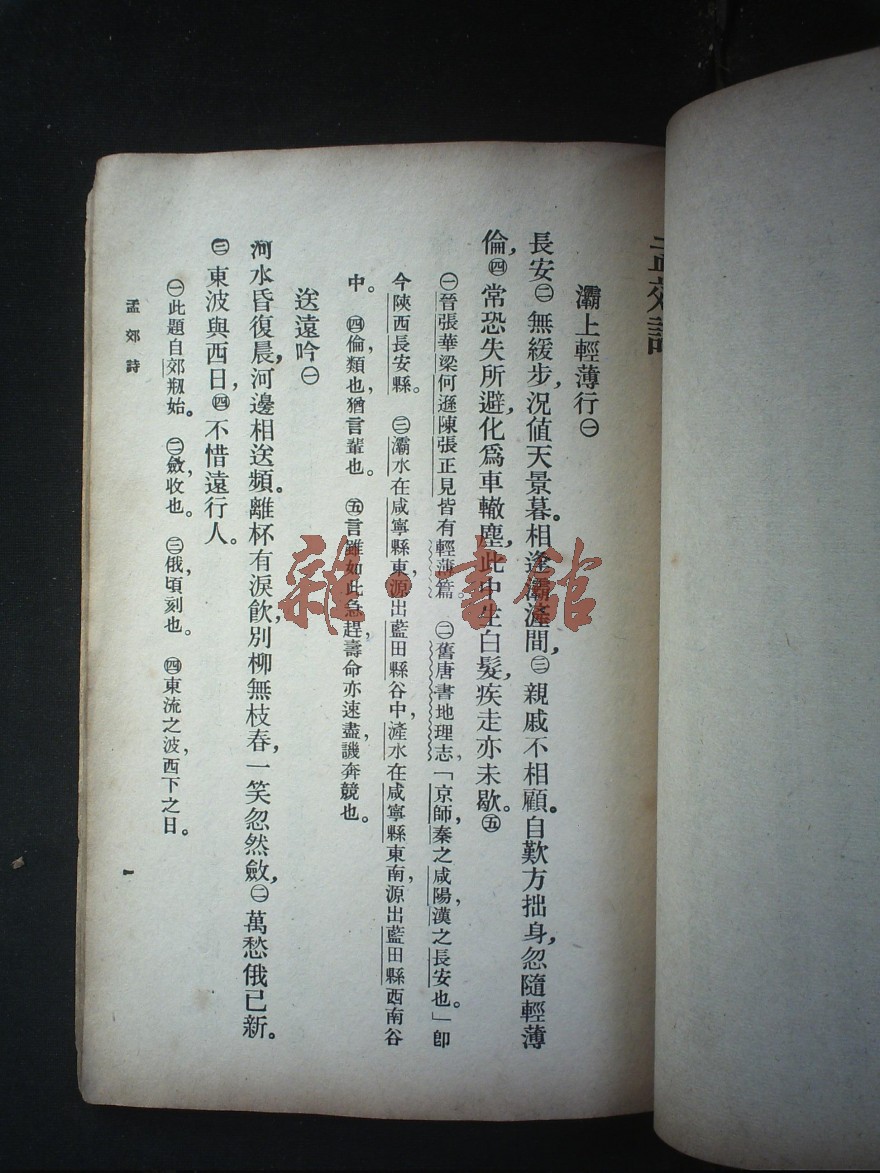 孟郊詩
灞上輕薄行㊀
長安㊁無緩步，況値天景暮。相逢灞滻間，㊂親戚不相顧。自歎方拙身，忽隨輕薄
倫，㊃常恐失所避，化爲車轍塵，此中生白髮，疾走亦未歇。㊄
㊀晉張華梁何遜陳張正見皆有輕薄篇。㊁舊唐書地理志，「京師，秦之咸陽，漢之長安也。」卽
今陝西長安縣。㊂灞水在咸寧縣東，源出藍田縣谷中，滻水在咸寧縣東南，源出藍田縣西南谷
中。㊃倫，類也，猶言輩也。㊄言雖如此急趕，壽命亦速盡，譏奔競也。
送遠吟㊀
河水昏復晨，河邊相送頻。離杯有淚飮，別柳無枝春，一笑忽然斂，㊁萬愁俄已新。
㊂東波與西日，㊃不惜遠行人。
㊀此題自郊剏始。㊁斂，收也。㊂俄，頃刻也。㊃東流之波，西下之日。
孟郊詩
一
雜·書館